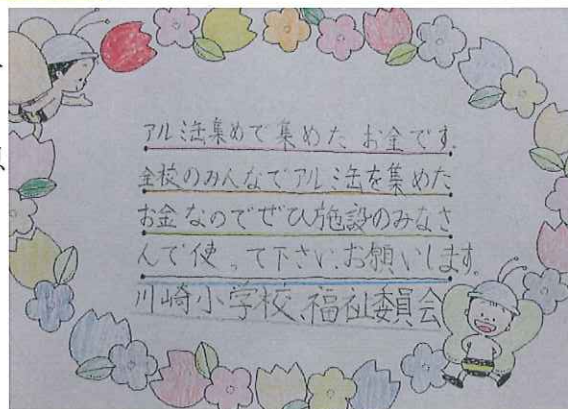 アルミ缶集めで集めたお金です。
全校のみんなでアルミ缶を集めた
お金なのでぜひ施設のみなさ
んで使って下さい。お願いします。
川崎小学校、福祉委員会